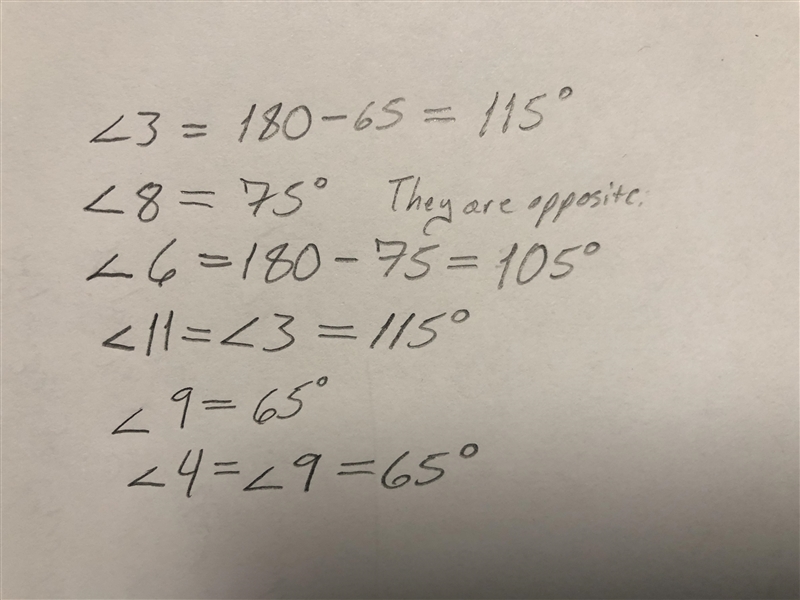 ∠3 = 180 - 65 = 115°
∠8 = 75° They are opposite.
∠6 = 180 - 75 = 105°
∠11 = ∠3 = 115°
∠9 = 65°
∠4 = ∠9 = 65°